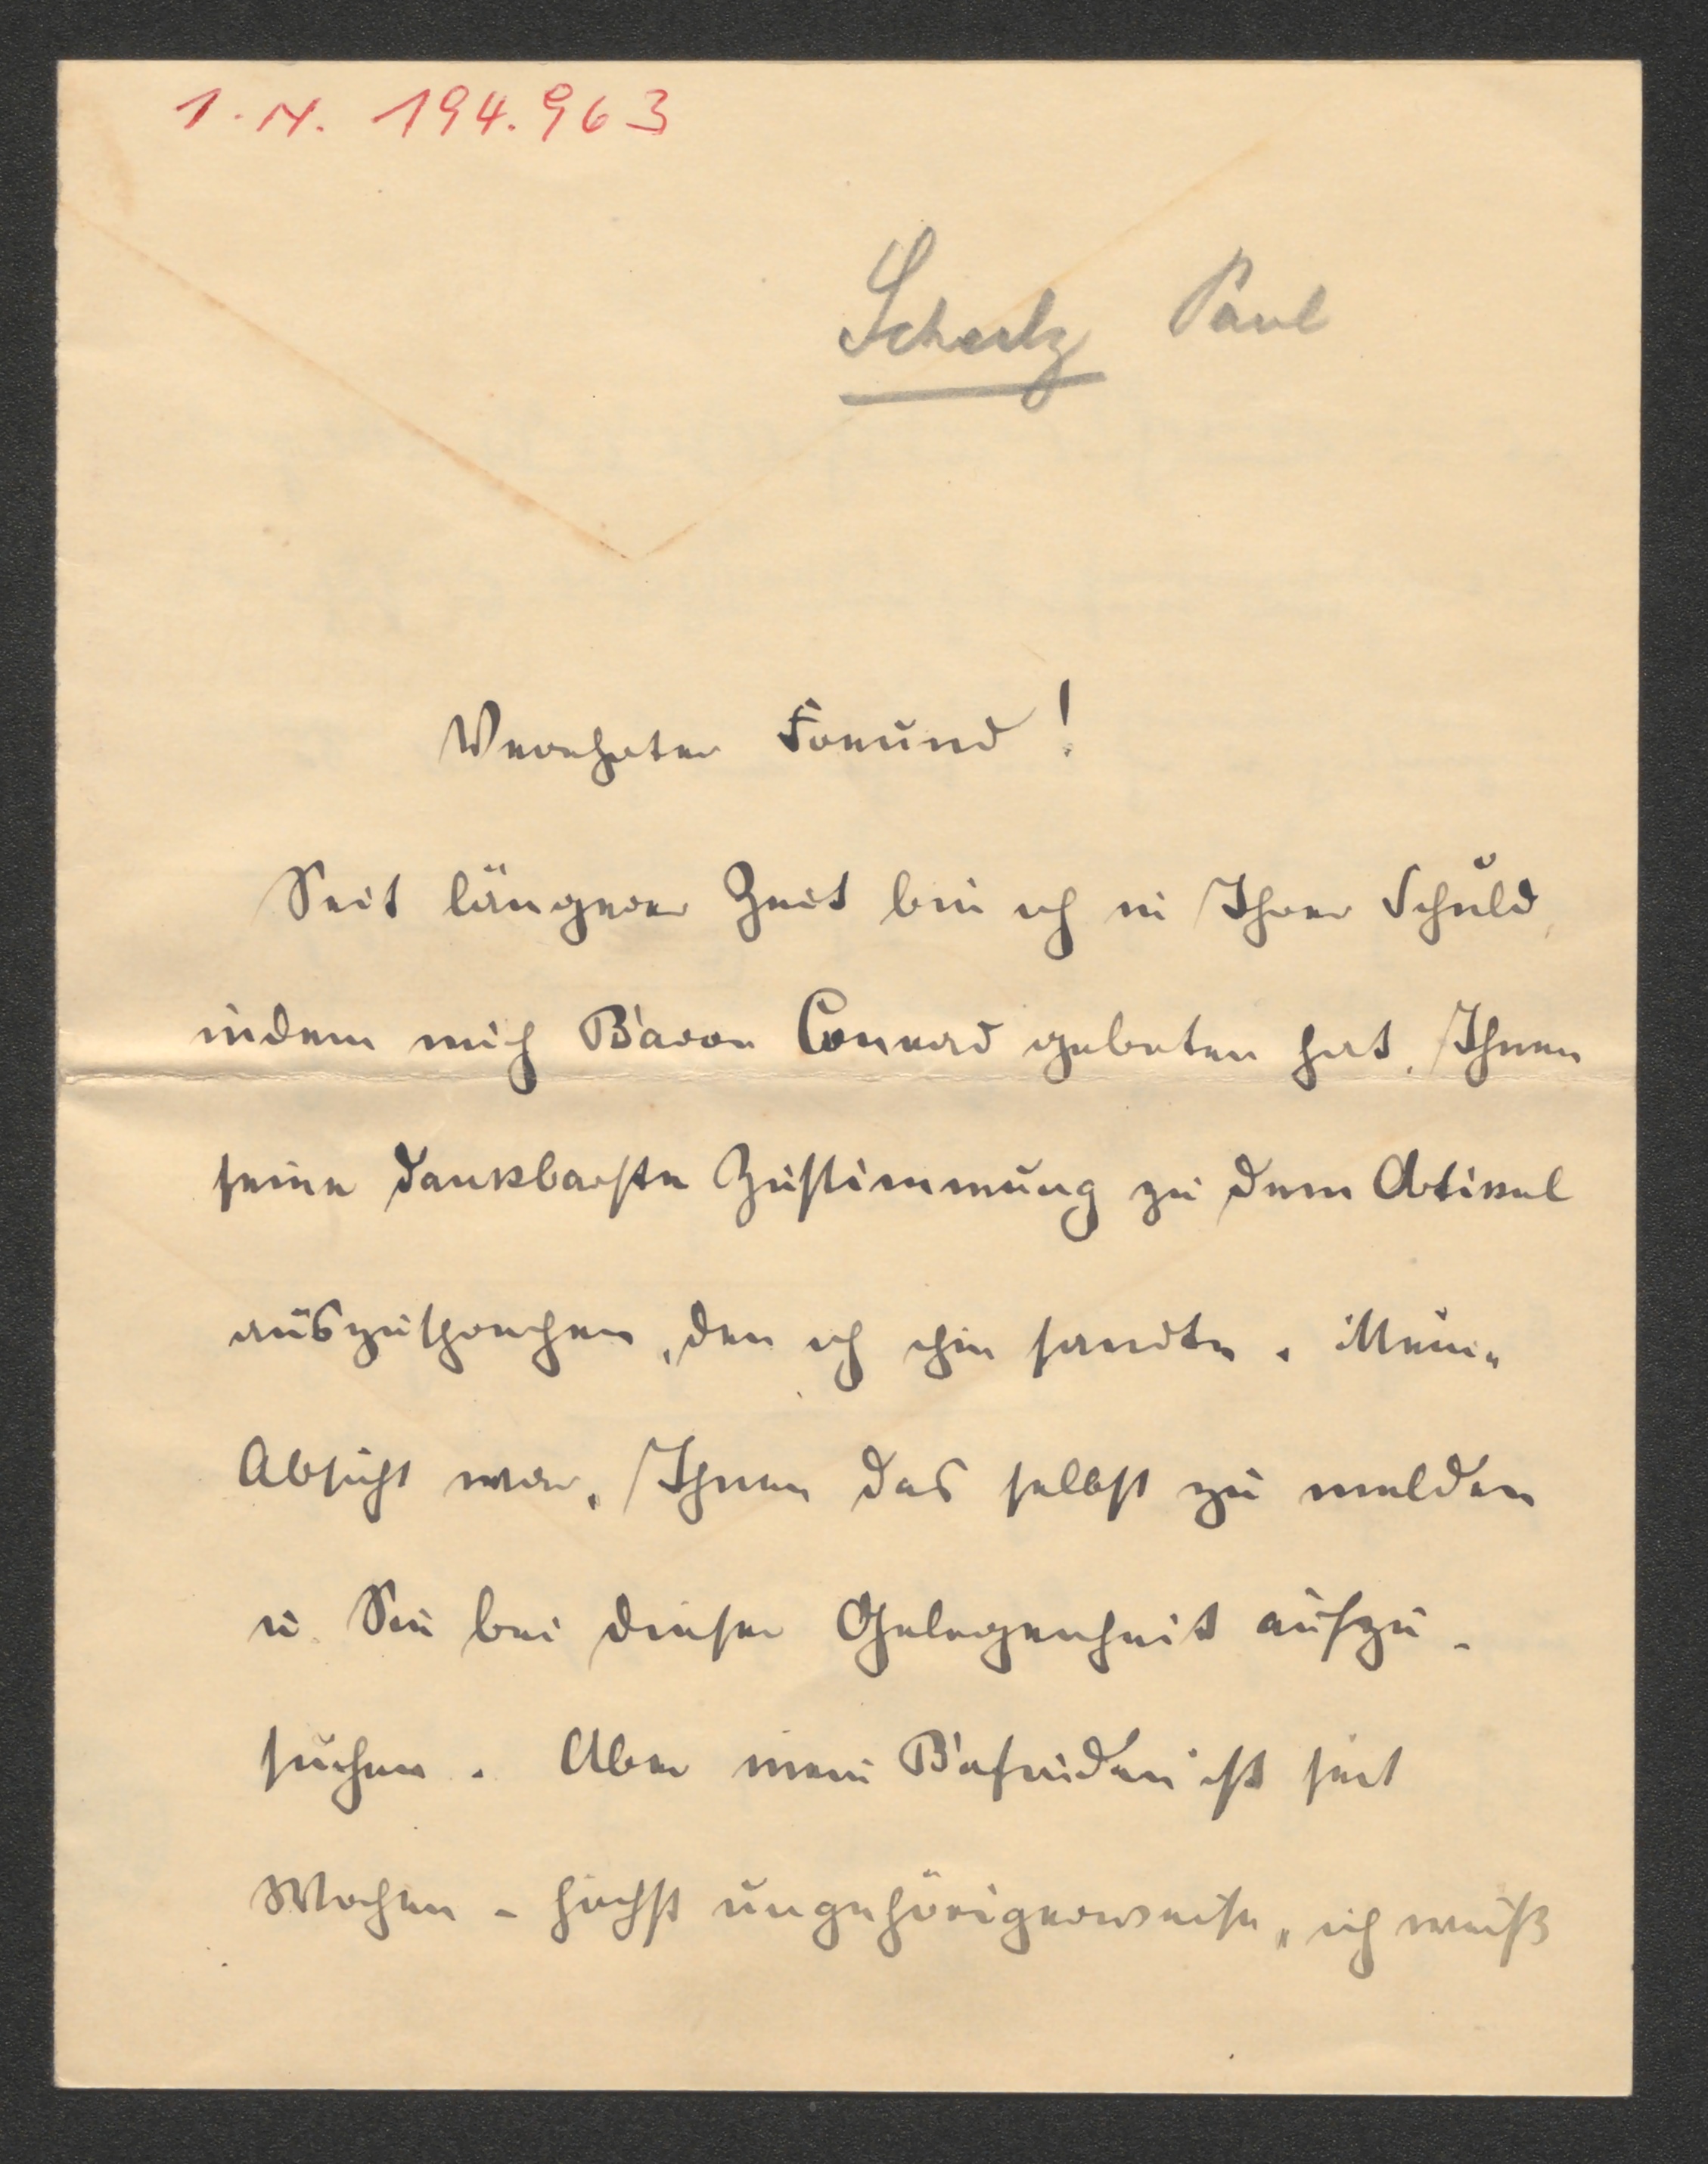 I. N. 194.963
Schulz Paul
Verehrter Freund!
Seit längerer Zeit bin ich in Ihrer Schuld,
indem mich Baron Conrad gebeten hat, Ihnen
seine dankbarste Zustimmung zu dem Artikel
auszusprechen, den ich ihm sandte. Meine
Absicht war, Ihnen das selbst zu melden
u. Sie bei dieser Gelegenheit aufzu-
suchen. Aber mein Befinden ist seit
Wochen - höchst ungehörigerweise, ich weiß